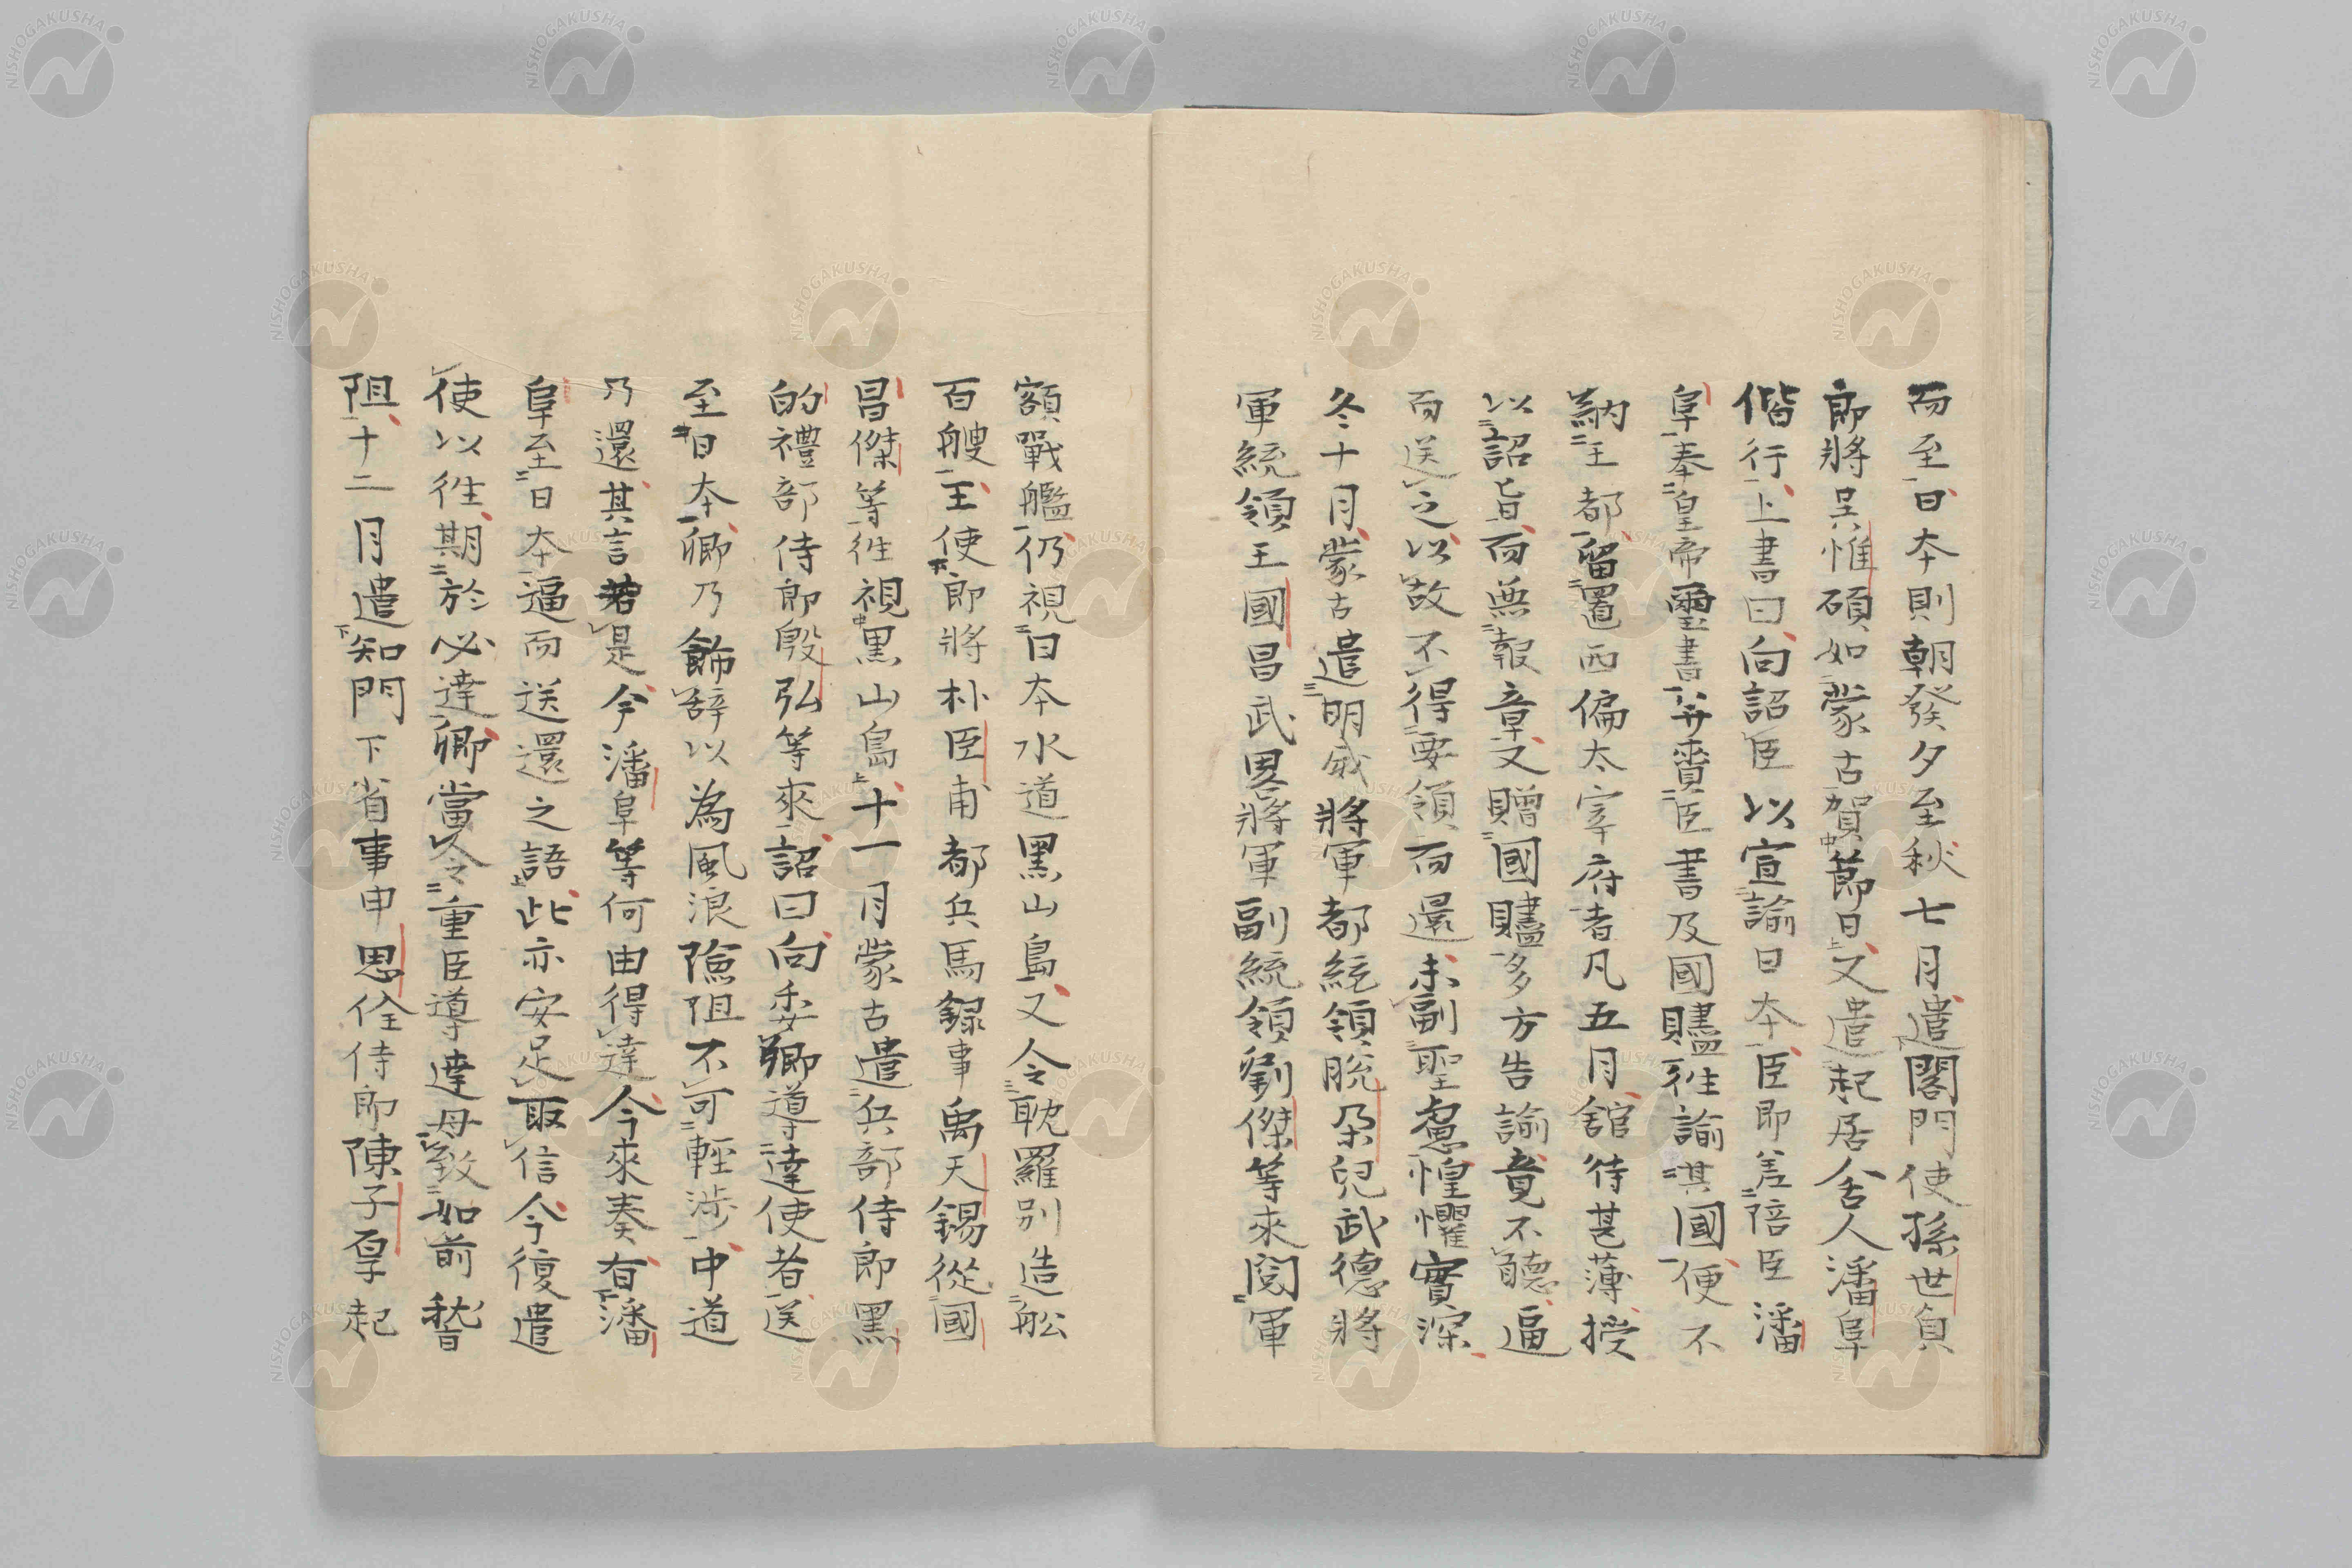 而至日本則朝發夕至秋七月遣閤門使孫世貞
郎將吳惟碩如蒙古賀節日又遣起居舍人潘阜
偕行上書曰向詔臣以宣諭日本臣即差陪臣潘
阜奉皇帝璽書并齎臣書及國贐往諭其國便不
納王都留置西偏太宰府者凡五月舘待甚薄授
以詔旨而無報章又贈國贐多方告諭竟不聽逼
而送之以故不得要領而還未副聖慮惶懼實深
冬十月蒙古遣明威將軍都統領脫朶兒武德將
軍統領王國昌武畧將軍副統領劉傑等來閱軍
額戰艦仍視日本水道黑山島又令耽羅別造舩
百艘王使郎將朴臣甫都兵馬録事禹天錫從國
昌傑等往視黑山島十一月蒙古遣兵部侍郎黑
的禮部侍郎殷弘等來詔曰向委卿導達使者送
至日本卿乃飾辞以為風浪險阻不可輕渉中道
乃還其言若是今潘阜等何由得達今來奏有潘
阜至日本逼而送還之語此亦安足取信今復遣
使以往期於必達卿當令重臣導達毋致如前稽
阻十二月遣知門下省事申思佺侍郎陳子厚起
NISHOGAKUSHA